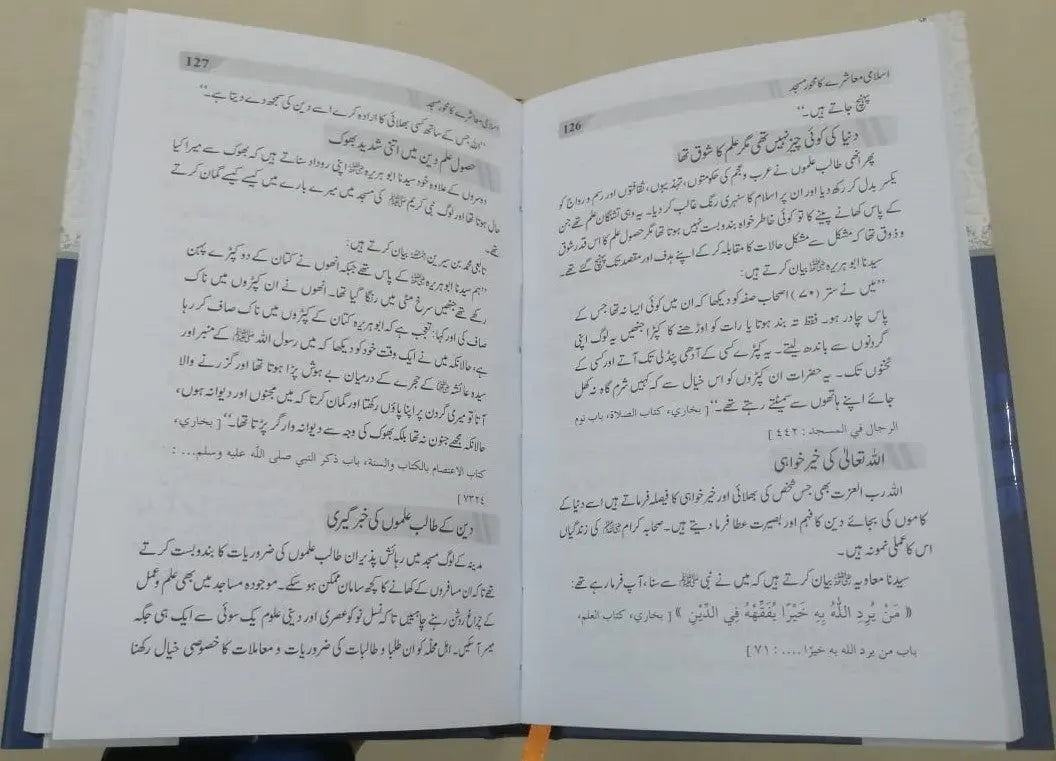 اسلامی معاشرے کا محور مسجد
126
پہنچ جاتے ہیں۔‘‘
دنیا کی کوئی چیز نہیں تھی مگر علم کا شوق تھا
پھر انھی طالب علموں نے عرب و عجم کی حکومتوں، تہذیبوں، ثقافتوں اور رسم و رواج کو
یکسر بدل کر رکھ دیا اور ان پر اسلام کا سنہری رنگ غالب کر دیا۔ یہ وہی تشنگان علم تھے جن
کے پاس کھانے پینے کا تو کوئی خاطر خواہ بندوبست نہیں ہوتا تھا مگر حصول علم کا اس قدر شوق
و ذوق تھا کہ مشکل سے مشکل حالات کا مقابلہ کر کے اپنے ہدف اور مقصد تک پہنچ گئے تھے۔
سیدنا ابو ہریرہ رضی اللہ عنہ بیان کرتے ہیں:
’’میں نے ستر (۷۰) اصحاب صفہ کو دیکھا کہ ان میں کوئی ایسا نہ تھا جس کے
پاس چادر ہو۔ فقط تہ بند ہوتا یا رات کو اوڑھنے کا کپڑا جنھیں یہ لوگ اپنی
گردنوں سے باندھ لیتے۔ یہ کپڑے کسی کے آدھی پنڈلی تک آتے اور کسی کے
ٹخنوں تک۔ یہ حضرات ان کپڑوں کو اس خیال سے کہ کہیں شرم گاہ نہ کھل
جائے اپنے ہاتھوں سے سمیٹتے رہتے تھے۔‘‘ [ بخاری، کتاب الصلاة، باب نوم
الرجال في المسجد : ٤٤٢ ]
اللہ تعالیٰ کی خیر خواہی
اللہ رب العزت بھی جس شخص کی بھلائی اور خیر خواہی کا فیصلہ فرماتے ہیں اسے دنیا کے
کاموں کی بجائے دین کا فہم اور بصیرت عطا فرما دیتے ہیں۔ صحابہ کرام رضی اللہ عنہم کی زندگیاں
اس کا عملی نمونہ ہیں۔
سیدنا معاویہ رضی اللہ عنہ بیان کرتے ہیں کہ میں نے نبی ﷺ سے سنا، آپ فرما رہے تھے:
« مَنْ يُرِدِ اللّٰهُ بِهِ خَيْرًا يُفَقِّهْهُ فِي الدِّيْنِ » [ بخاری، کتاب العلم،
باب من يرد الله به خيرًا .... : ٧١ ]
127
اسلامی معاشرے کا محور مسجد
’’اللہ جس کے ساتھ کسی بھلائی کا ارادہ کرے اسے دین کی سمجھ دے دیتا ہے۔‘‘
حصول علم دین میں اتنی شدید بھوک
دوسروں کے علاوہ خود سیدنا ابو ہریرہ رضی اللہ عنہ اپنی روداد سناتے ہیں کہ بھوک سے میرا کیا
حال ہوتا تھا اور لوگ نبی کریم ﷺ کی مسجد میں میرے بارے میں کیسے کیسے گمان کرتے
تھے۔
تابعی محمد بن سیرین رحمہ اللہ بیان کرتے ہیں:
’’ہم سیدنا ابو ہریرہ رضی اللہ عنہ کے پاس تھے جبکہ انھوں نے کتان کے دو کپڑے پہن
رکھے تھے جنھیں سرخ مٹی میں رنگا گیا تھا۔ انھوں نے ان کپڑوں میں ناک
صاف کی اور کہا: تعجب ہے کہ ابو ہریرہ کتان کے کپڑوں میں ناک صاف کر رہا
ہے، حالانکہ میں نے ایک وقت خود کو دیکھا کہ میں رسول اللہ ﷺ کے منبر اور
سیدہ عائشہ رضی اللہ عنہا کے حجرے کے درمیان بے ہوش پڑا ہوتا تھا اور گزرنے والا
آتا تو میری گردن پر اپنا پاؤں رکھتا اور گمان کرتا کہ میں مجنوں اور دیوانہ ہوں،
حالانکہ مجھے جنون نہ تھا بلکہ بھوک کی وجہ سے دیوانہ وار گر پڑتا تھا۔‘‘ [ بخاري،
كتاب الاعتصام بالكتاب والسنة، باب ذكر النبي صلى الله عليه وسلم... :
٧٣٢٤ ]
دین کے طالب علموں کی خبر گیری
مدینہ کے لوگ مسجد میں رہائش پذیر ان طالب علموں کی ضروریات کا بندوبست کرتے
تھے تاکہ ان مسافروں کے کھانے کا کچھ سامان ممکن ہو سکے۔ موجودہ مساجد میں بھی علم و عمل
کے چراغ روشن رہنے چاہئیں تاکہ نسل نو کو عصری اور دینی علوم یک سوئی سے ایک ہی جگہ
میسر آ سکیں۔ اہل محلہ کو ان طلبا و طالبات کی ضروریات و معاملات کا خصوصی خیال رکھنا